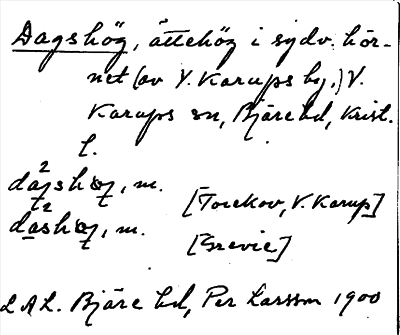 Dagshög, ättehög i sydv. hör-
net (av V. Karups by.) V.
Karups sn, Bjäre hd, Krist.
l.
dagshøg, m.
[Torekov, V. Karup]
dashøg, m.
[Grevie]
LAL. Bjäre hd, Per Larsson 1900